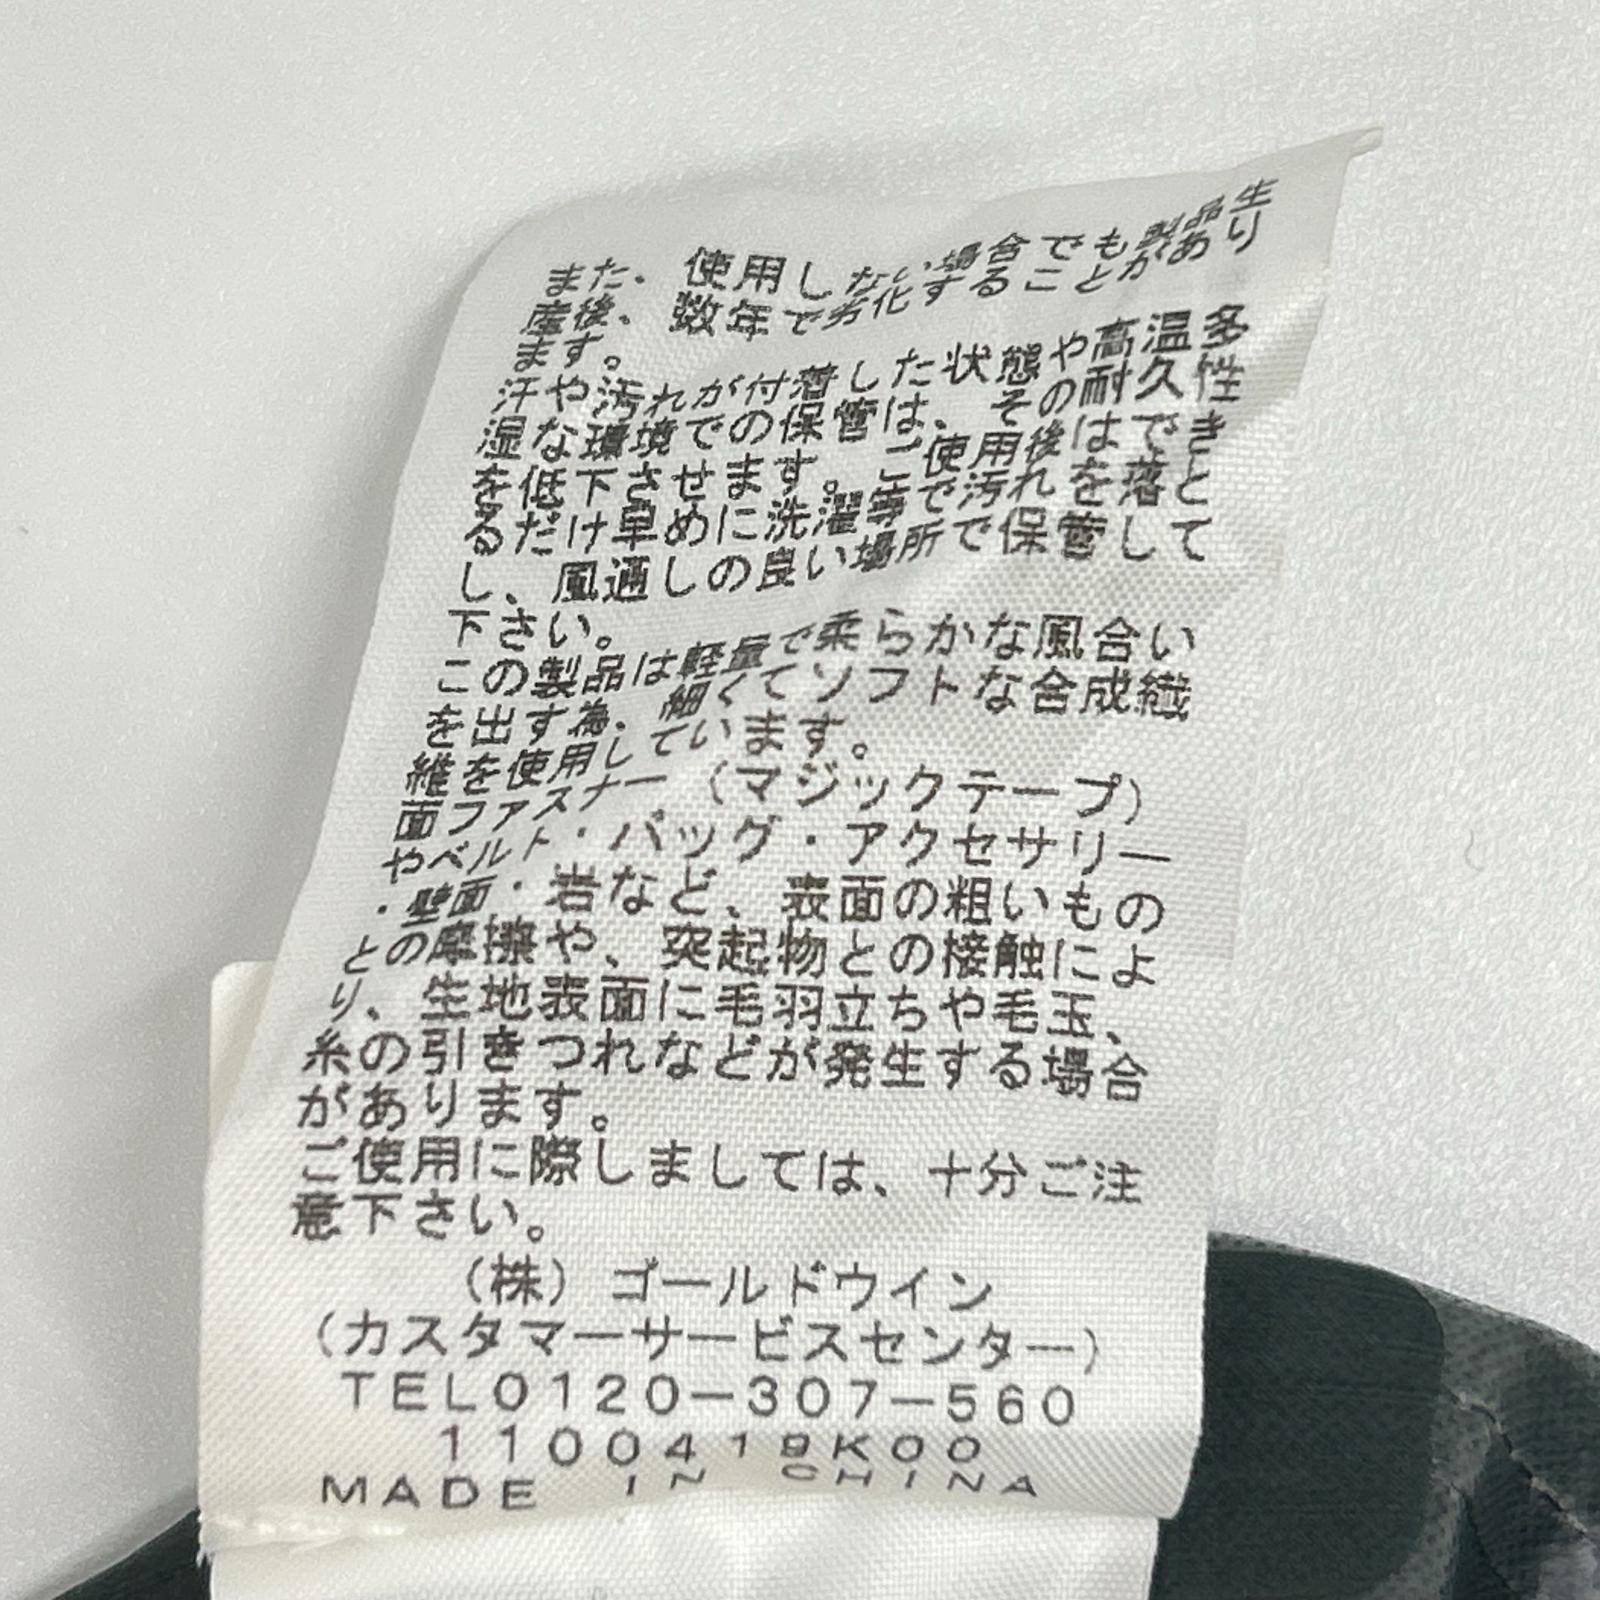 また、使用しない場合でも製品生
産後、数年で劣化することがあり
ます。
汗や汚れが付着した状態や高温多
湿な環境での保管は、その耐久性
を低下させます。ご使用後はでき
るだけ早めに洗濯等で汚れを落と
し、風通しの良い場所で保管して
下さい。
この製品は軽量で柔らかな風合い
を出す為、細くてソフトな合成繊
維を使用しています。
面ファスナー（マジックテープ）
やベルト・バッグ・アクセサリー
・壁面・岩など、表面の粗いもの
との摩擦や、突起物との接触によ
り、生地表面に毛羽立ちや毛玉、
糸の引きつれなどが発生する場合
があります。
ご使用に際しましては、十分ご注
意下さい。
（株）ゴールドウイン
（カスタマーサービスセンター）
TEL0120－307－560
1100419K00
MADE IN CHINA